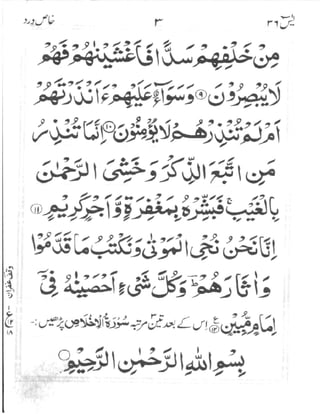 یٰسٓ ۳۶ ۳ خاص ورد
مِنْ خَلْفِهِمْ سَدًّا فَاَغْشَيْنٰهُمْ فَهُمْ
لَا يُبْصِرُوْنَ ۹ وَسَوَآءٌ عَلَيْهِمْ ءَاَنْذَرْتَهُمْ
اَمْ لَمْ تُنْذِرْهُمْ لَا يُؤْمِنُوْنَ ۱۰ اِنَّمَا تُنْذِرُ
مَنِ اتَّبَعَ الذِّكْرَ وَخَشِیَ الرَّحْمٰنَ
بِالْغَيْبِ ۚ فَبَشِّرْهُ بِمَغْفِرَةٍ وَّاَجْرٍ كَرِيْمٍ ۱۱
اِنَّا نَحْنُ نُحْیِ الْمَوْتٰی وَنَكْتُبُ مَا قَدَّمُوْا
وَاٰثَارَهُمْ ؕ وَكُلَّ شَیْءٍ اَحْصَيْنٰهُ فِیْۤ
اِمَامٍ مُّبِيْنٍ ۱۲ اس کے بعد تین ۳ مرتبہ سُوْرَۃُ الْاِخْلَاص پڑھیں:-
بِسْمِ اللهِ الرَّحْمٰنِ الرَّحِيْمِ
وقف غفران